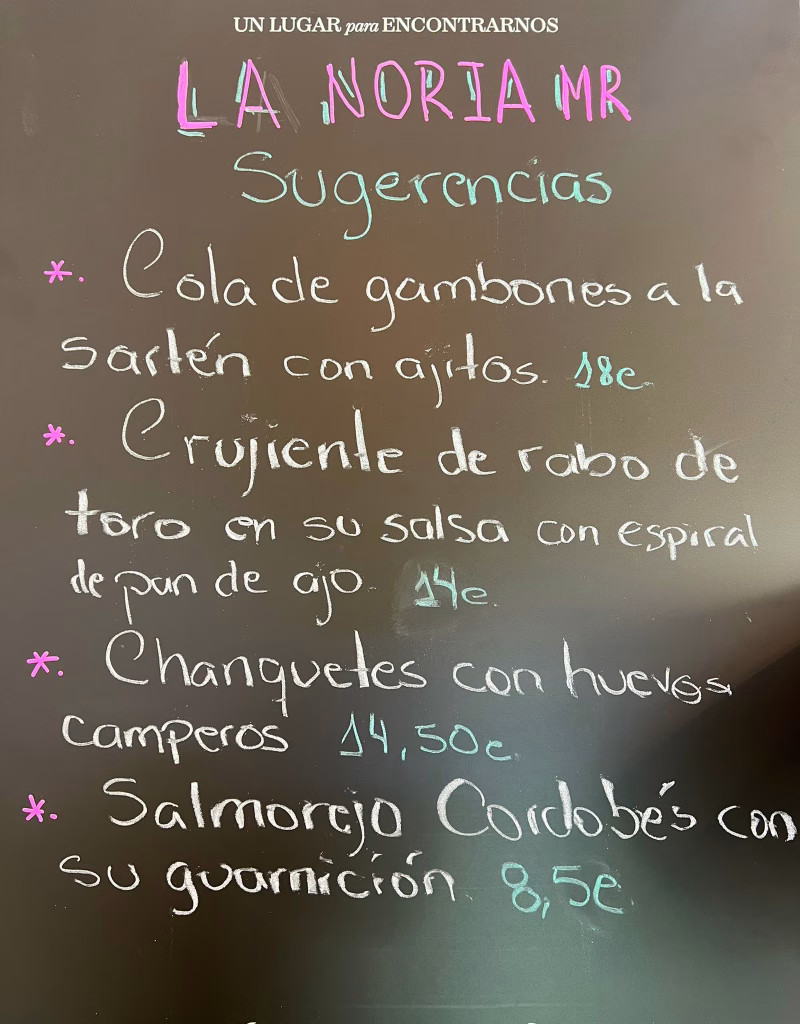 UN LUGAR para ENCONTRARNOS
LA NORIA MR
Sugerencias
*. Cola de gambones a la
sartén con ajitos. 18e
*. Crujiente de rabo de
toro en su salsa con espiral
de pan de ajo 14e.
*. Chanquetes con huevos
camperos 14,50e
*. Salmorejo Cordobés con
su guarnición 8,5e